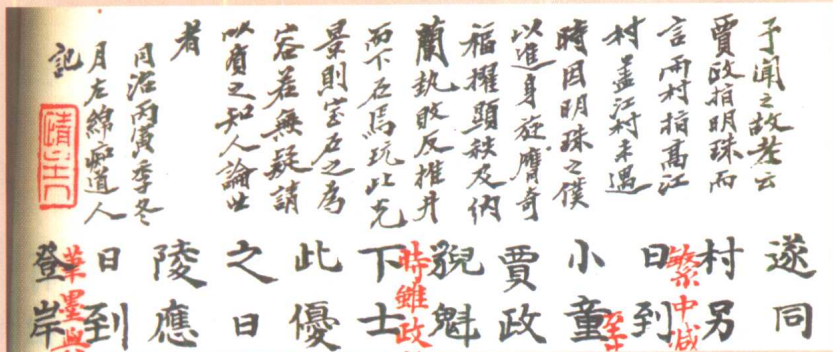 予聞之故老云
賈政指明珠而
言雨村指高江
村蓋江村未遇
時因明珠之僕
以進身旋膺奇
福擢顯秩及納
蘭執敗反推井
而下石焉玩此光
景則宝石之為
容若無疑請
以質之知人論世
者
同治丙寅季冬
月左綿痴道人
記
情主人
遂同
村另
繁中減
日到
至中
小童
賈政
貌魁
時雖政
下士
此優
之日
陵應
日到
筆墨與
登岸